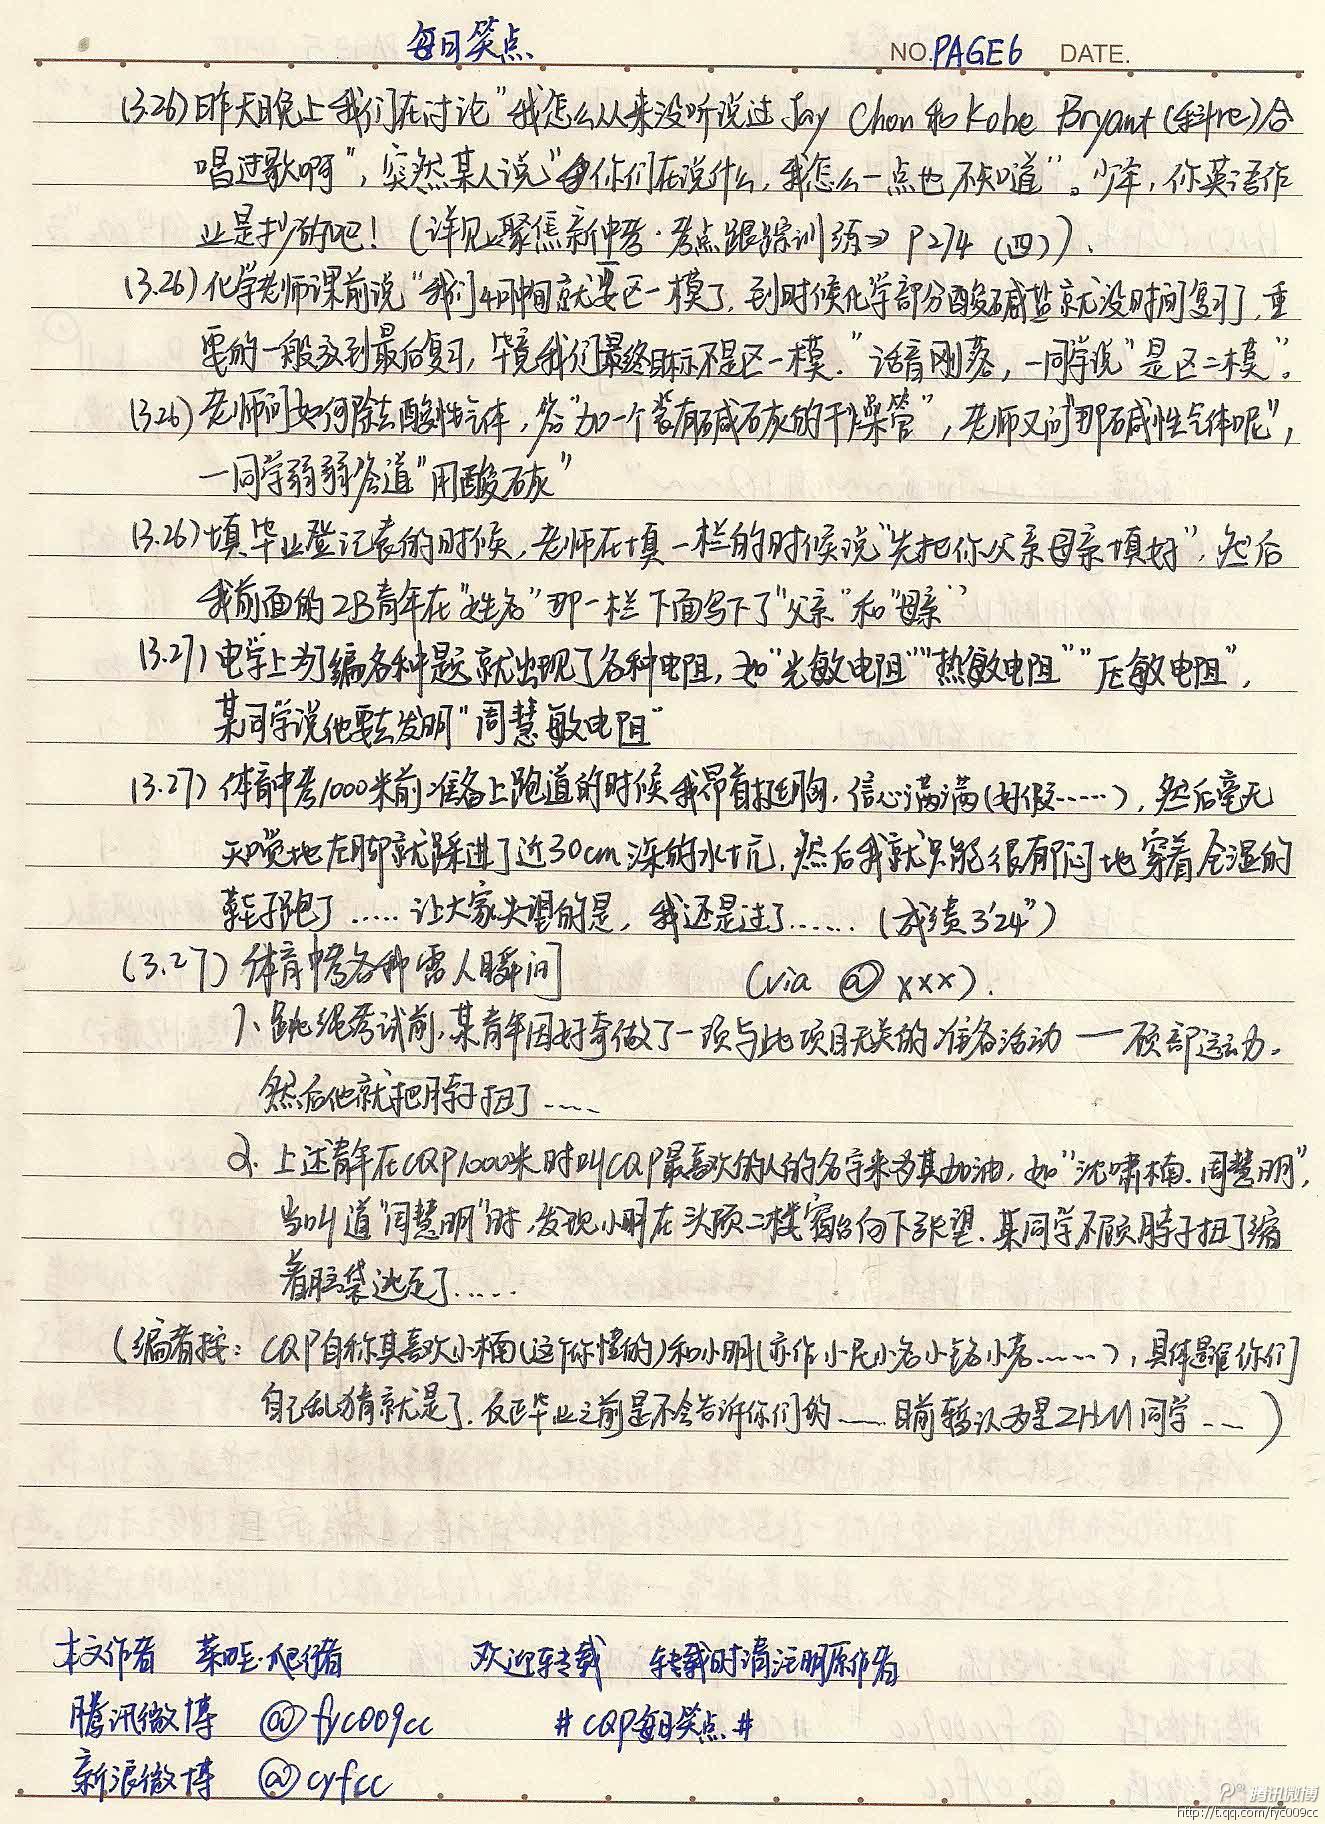 每日笑点
NO. PAGE6 DATE.
(3.26)昨天晚上我们在讨论"我怎么从来没听说过Jay Chou和Kobe Bryant(科re)合
唱过歌啊",突然某人说"你们在说什么,我怎么一点也不知道"。少年,你英语作
业是抄的吧!(详见《聚焦新中考·考点跟踪训练》P274(四)).
(3.26)化学老师课前说"我们4月中旬就要区一模了,到时候化学部分酸碱盐就没时间复习了,重
要的一般放到最后复习,毕竟我们最终目标不是区一模."话音刚落,一同学说"是区二模"。
(3.26)老师问如何除去酸性气体,答"加一个装有碱石灰的干燥管",老师又问"那碱性气体呢",
一同学弱弱答道"用酸石灰"
(3.26)填毕业登记表的时候,老师在填一栏的时候说"先把你父亲母亲填好",然后
我前面的2B青年在"姓名"那一栏下面写下了"父亲"和"母亲"
(3.27)电学上为了编各种题就出现了各种电阻,如"光敏电阻""热敏电阻""压敏电阻",
某同学说他要去发明"周慧敏电阻"
(3.27)体育中考1000米前准备上跑道的时候我昂首挺胸,信心满满(好假……),然后毫无
知觉地左脚就踩进了近30cm深的水坑,然后我就只能很郁闷地穿着全湿的
鞋子跑了……让大家失望的是,我还是过了……(成绩3'24")
(3.27)体育中考各种雷人瞬间 (via @xxx).
1、跳绳考试前,某青年因好奇做了一项与此项目无关的准备活动——颈部运动.
然后他就把脖子扭了……
2. 上述青年在CQP1000米时叫CQP最喜欢的人的名字来为其加油,如"沈啸楠、周慧明",
当叫道"周慧明"时,发现小明在头顶二楼窗台向下张望.某同学不顾脖子扭了缩
着脑袋逃走了……
(编者按:CQP自称其喜欢小楠(这个你懂的)和小明(亦作小民小名小铭小茗……),具体是谁你们
自己乱猜就是了.反正毕业之前是不会告诉你们的……目前暂认为是ZHM同学……)
本文作者 爬行者 欢迎转载 转载时请注明原作者
腾讯微博 @fyc009cc #CQP每日笑点#
新浪微博 @cyfcc
腾讯微博
http://t.qq.com/fyc009cc